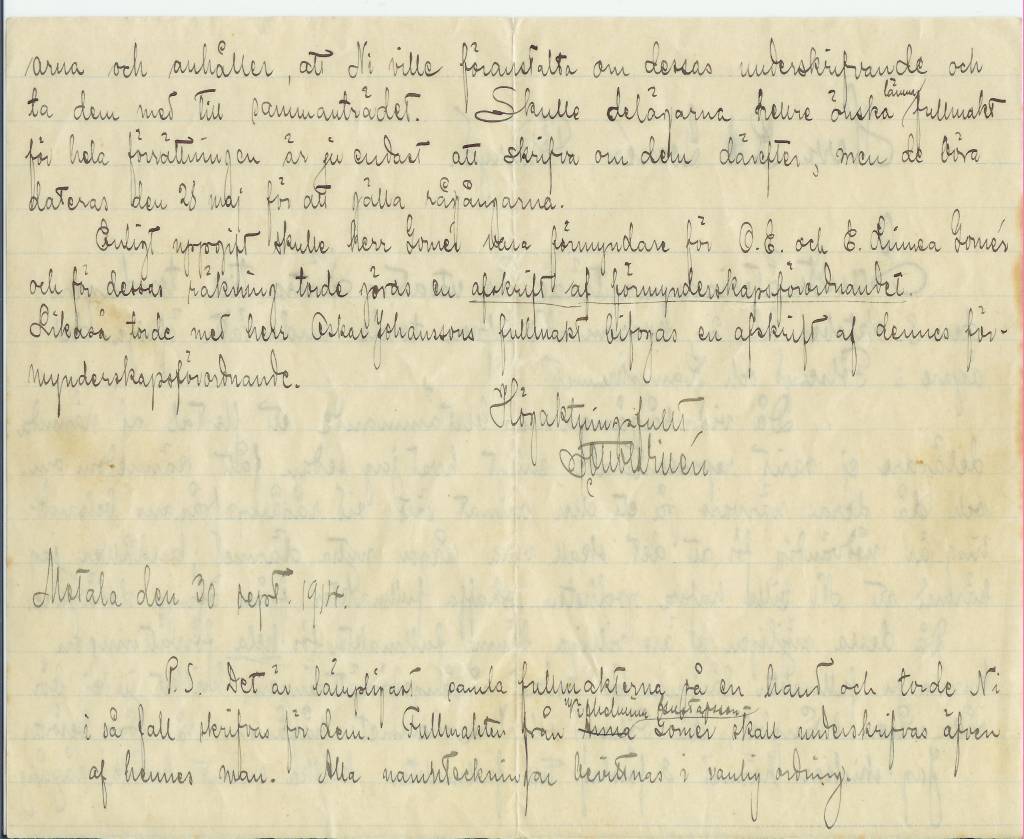 arna och anhåller, att Ni ville föranstalta om dessas underskrifvande och
ta dem med till sammanträdet. Skulle delägarna hellre önska lämna fullmakt
för hela förrättningen är ju endast att skrifva om dem därefter, men de böra
dateras den 28 maj för att gälla rågångarna.
Enligt uppgift skulle herr Gomér vara förmyndare för O.E. och E. Linnea Gomér
och för dessas räkning torde göras en afskrift af förmynderskapsförordnandet.
Likaså torde med herr Oskar Johanssons fullmakt bifogas en afskrift af dennes för-
mynderskapsförordnande.
Högaktningsfullt
Motala den 30 sept. 1914.
P.S. Det är lämpligast samla fullmakterna på en hand och torde Ni
i så fall skrifvas för dem. Fullmakten från Anna Vilhelmina Gustafsson Gomér skall underskrifvas äfven
af hennes man. Alla namnteckningar bevittnas i vanlig ordning.